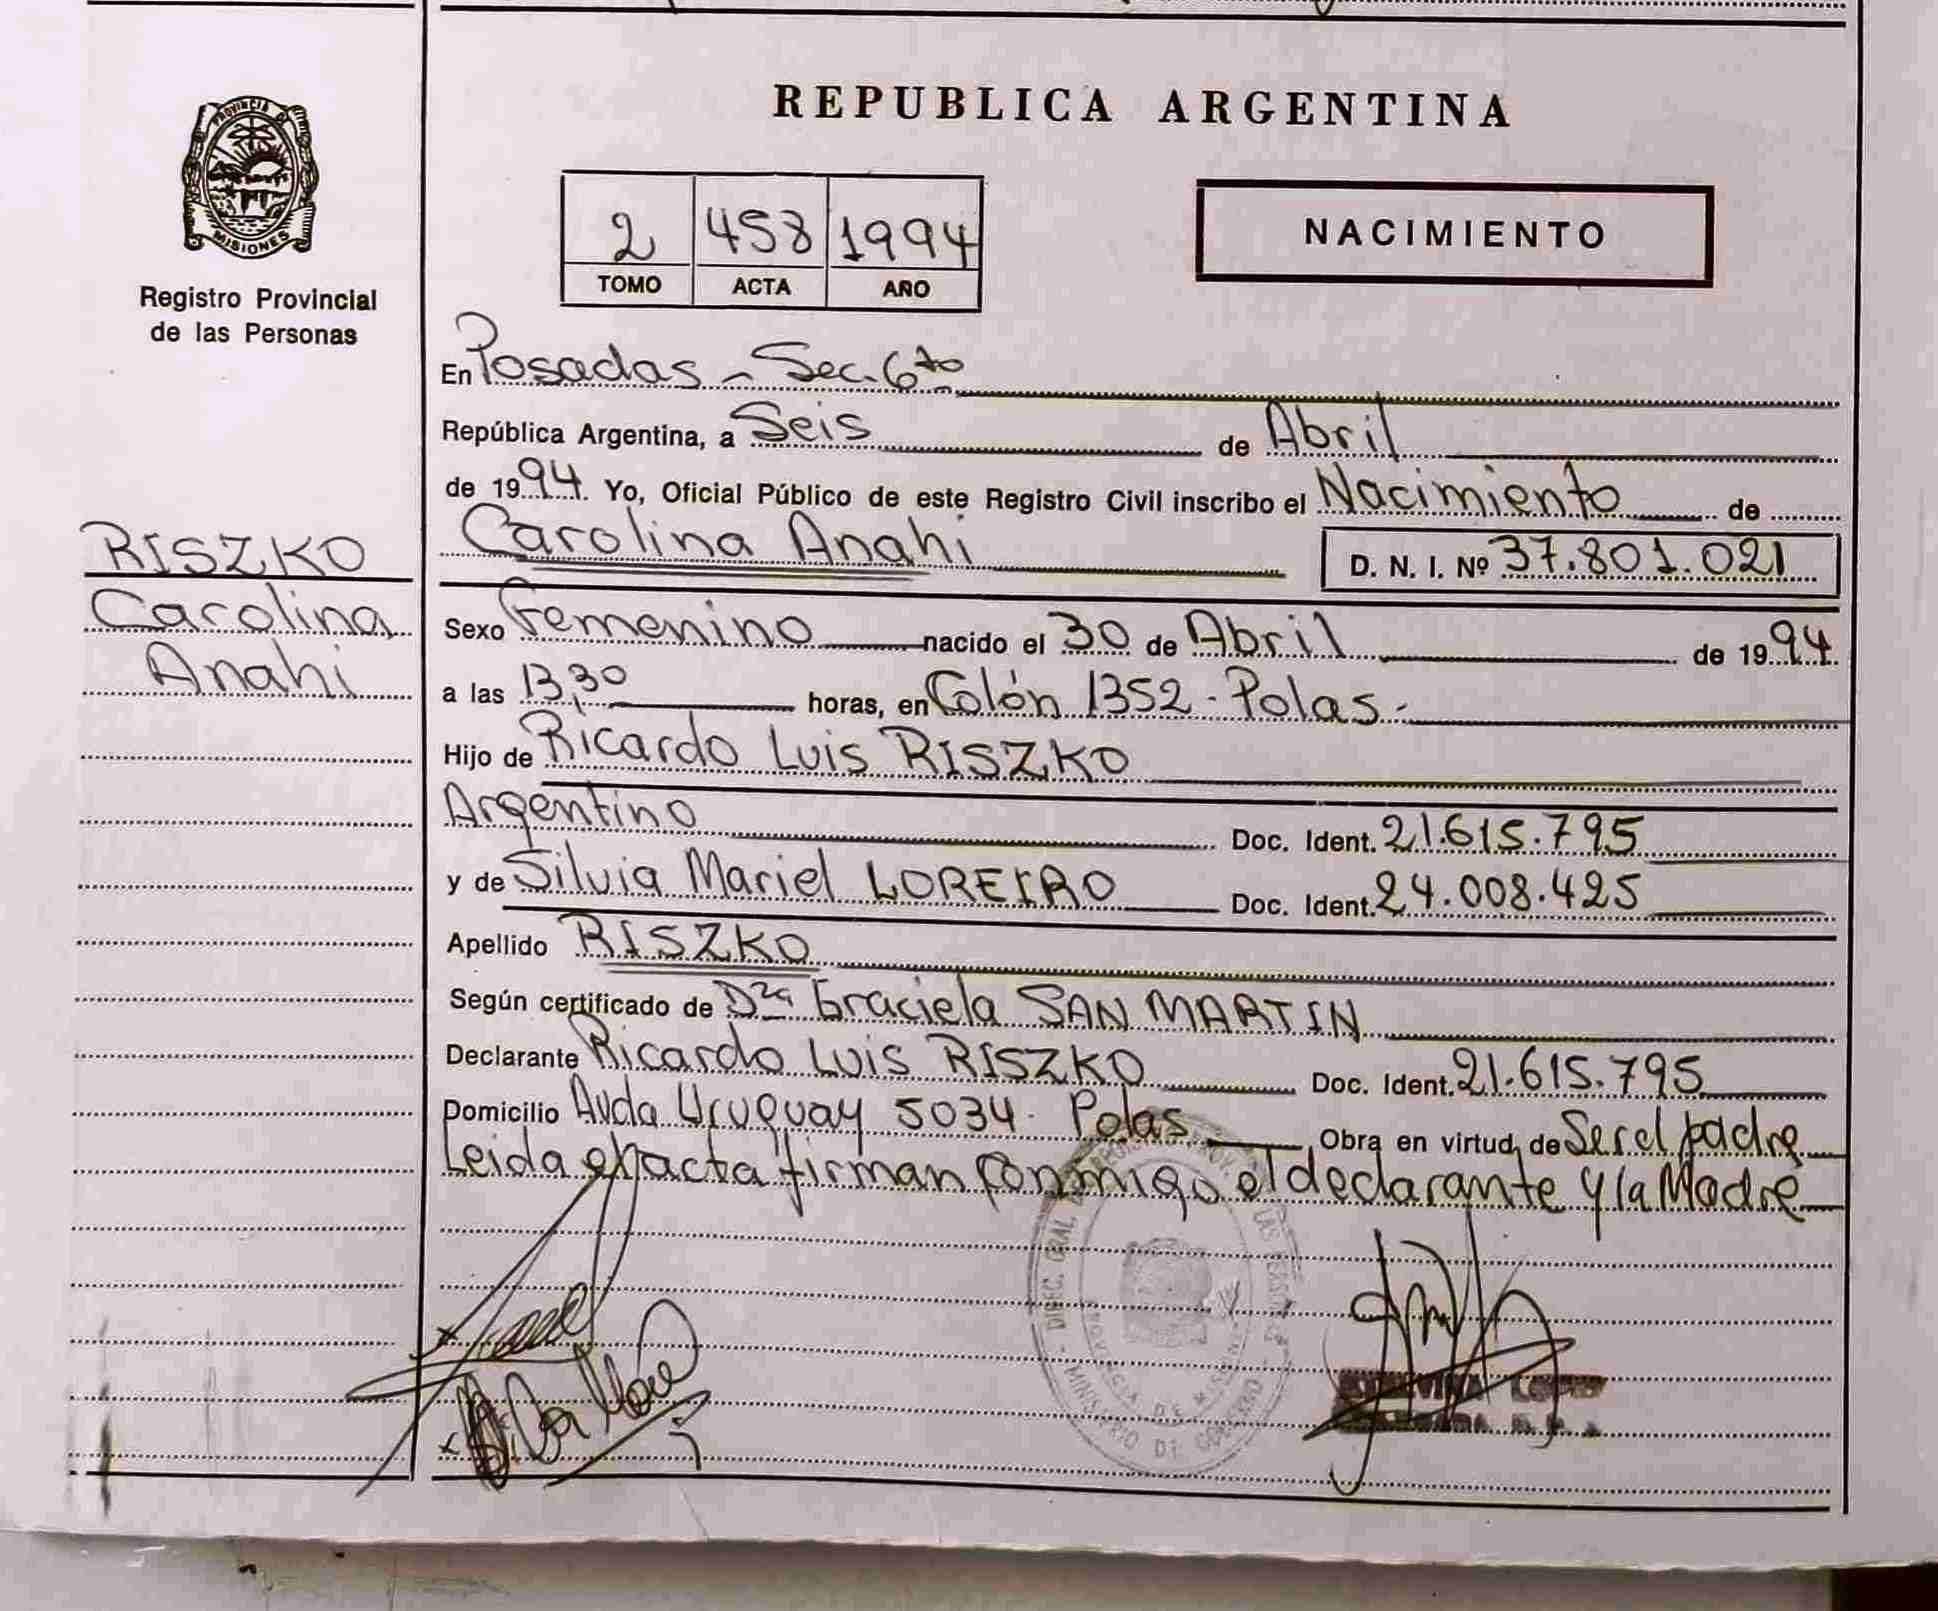 REPUBLICA ARGENTINA
PROVINCIA DE MISIONES
Registro Provincial
de las Personas
2 458 1994
TOMO ACTA AÑO
NACIMIENTO
En Posadas - Sec. 6to
República Argentina, a Seis de Abril
de 1994. Yo, Oficial Público de este Registro Civil inscribo el Nacimiento de
Carolina Anahi D. N. I. Nº 37.801.021
RISZKO
Carolina
Anahi
Sexo Femenino nacido el 30 de Abril de 1994.
a las 13,30 horas, en Colón 1352 - Polas -
Hijo de Ricardo Luis RISZKO
Argentino Doc. Ident. 21.615.795
y de Silvia Mariel LOREIRO Doc. Ident. 24.008.425
Apellido RISZKO
Según certificado de Dra Graciela SAN MARTIN
Declarante Ricardo Luis RISZKO Doc. Ident. 21.615.795
Domicilio Avda Uruguay 5034 - Polas Obra en virtud de Ser el padre
Leida el acta firman conmigo el declarante y la Madre
DIREC. GRAL. LAS PERSONAS
PROVINCIA DE MISIONES
MINISTERIO DE GOBIERNO